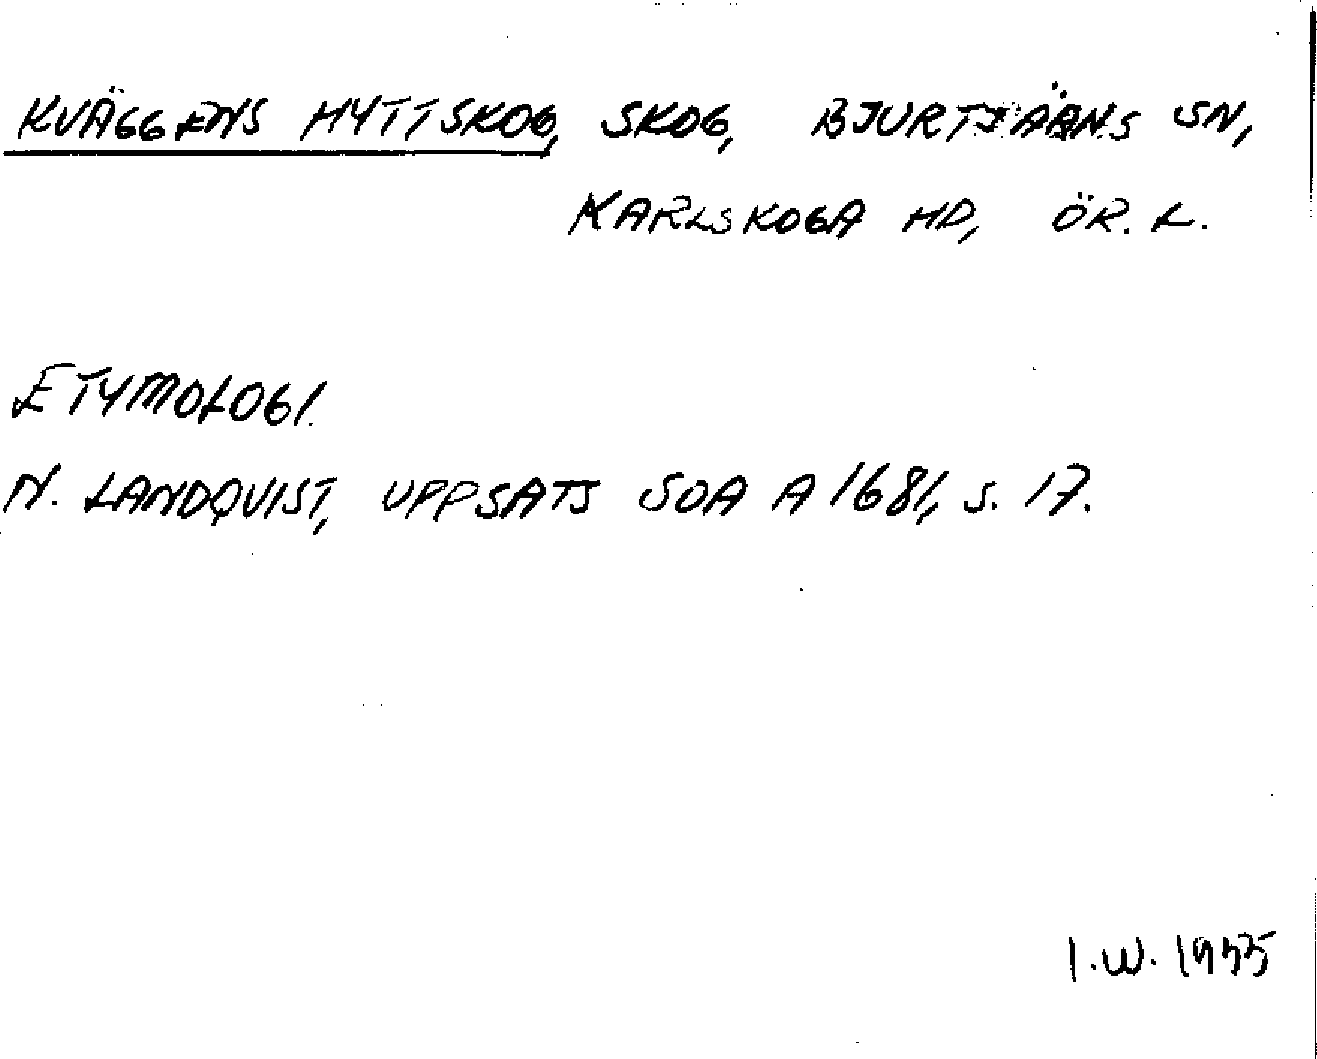 KVÄGGENS HYTTSKOG, SKOG, BJURTJÄRNS SN,
KARLSKOGA HD, ÖR. L.
ETYMOLOGI.
N. LANDQVIST, UPPSATS SOA A 1681, S. 17.
I.W. 1955